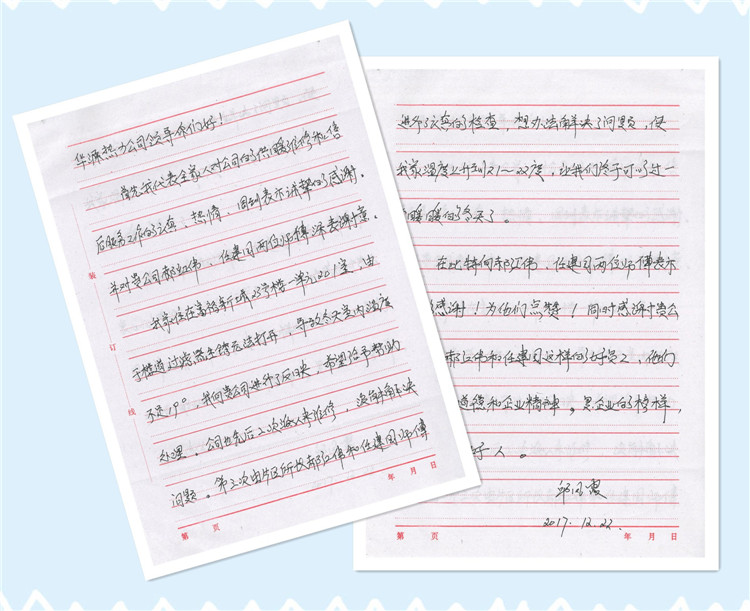 华源热力公司领导你们好！
首先我代表全家人对公司的供暖维修和售
后服务工作的认真、热情、周到表示诚挚的感谢。
并对贵公司郝红伟、任建国两位师傅深表谢意。
我家住在富裕新城23号楼一单元201室，由
于管道过滤器生锈无法打开，导致冬天室内温度
不足19°，我向贵公司进行了反映，希望给予帮助
处理。公司首先后2次派人来维修，没解决
问题。第三次由片区所长郝红伟和任建国师傅
装
订
线
第 页 年 月 日
进行了认真的检查，想办法解决了问题，使
我家温度上升到21～22度，让我们终于可以过一
暖暖的冬天了。
在此特向郝红伟、任建国两位师傅表示
感谢！为他们点赞！同时感谢贵公
郝红伟和任建国这样的好员工，他们
道德和企业精神。是企业的榜样，
好人。
邱 霞
2017.12.22.
第 页 年 月 日